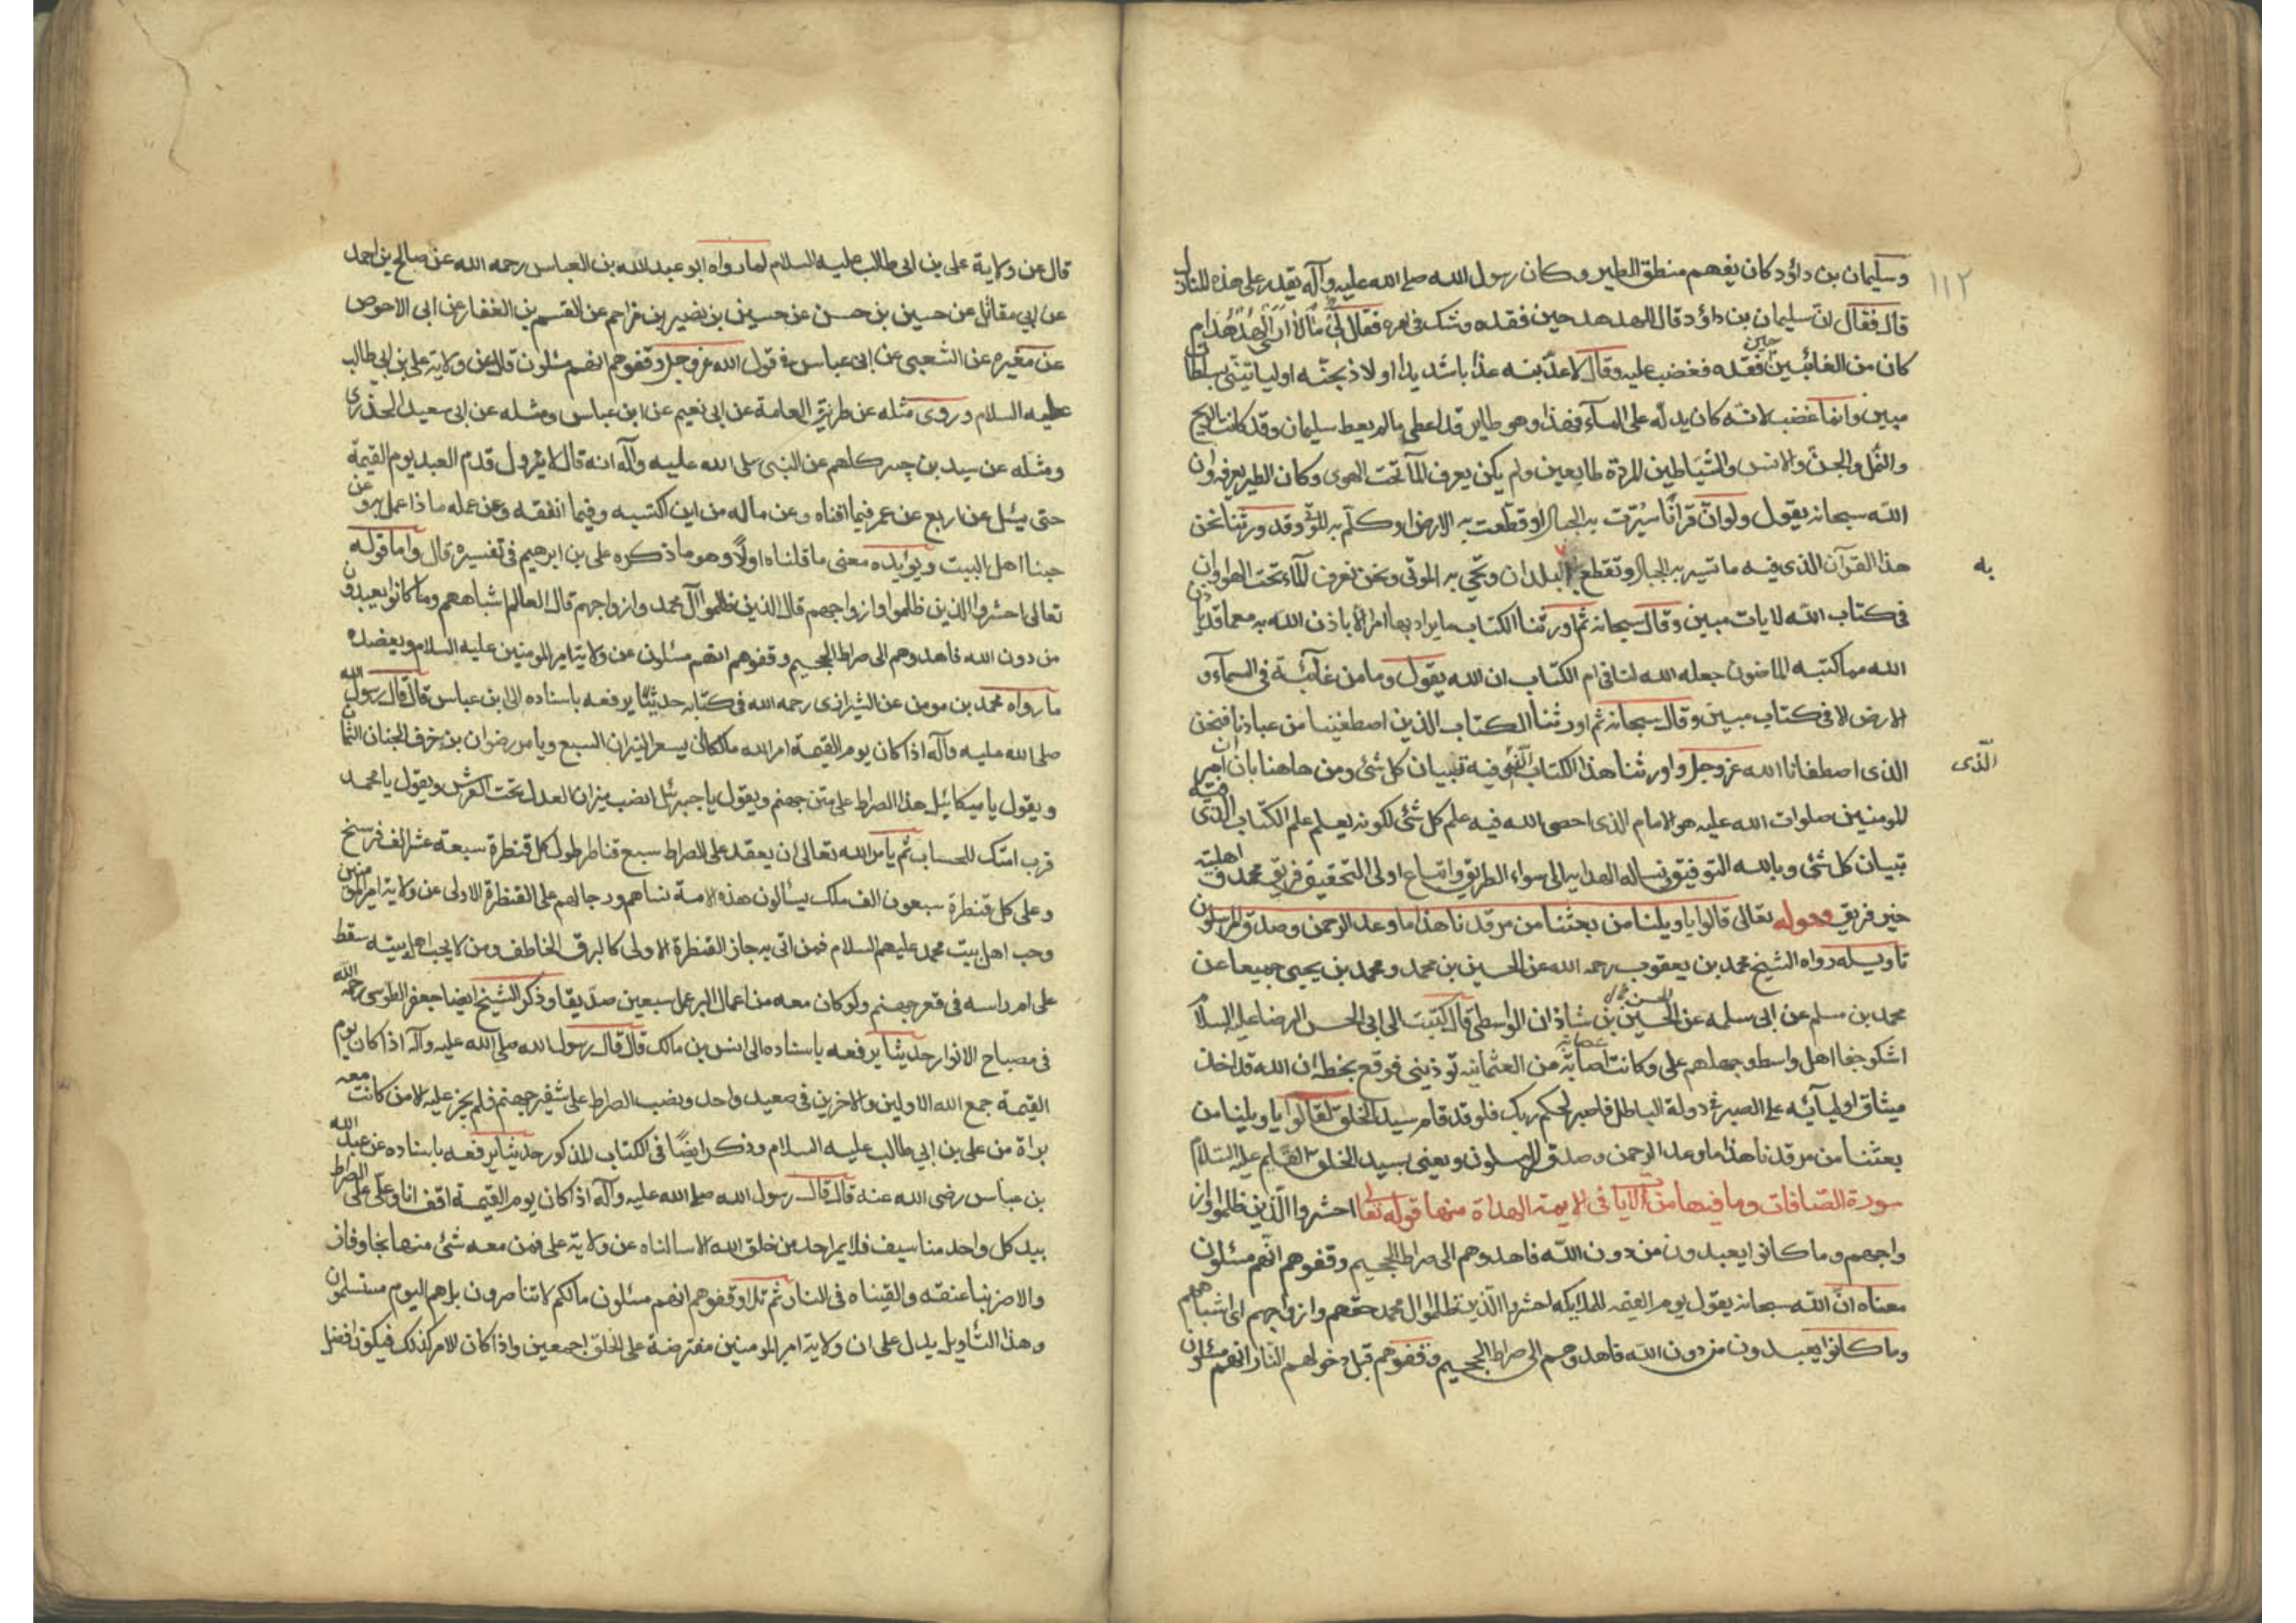 ١١٢
وسليمان بن داؤد كان يفهم منطق الطير وكان رسول الله صلى الله عليه وآله يقدر على هذه المنازل
قال فقال انّ سليمان بن داؤد قال الهدهد حين فقده وشك فى امره فقال مَا لِيَ لاَ اَرَى الْهُدْهُدَ ام
كان من الغائبين حين فقده فغضب عليه وقال لاعذّبنه عذابا شديدا او لاذبحنّه او لياتينّى بسلطان
مبين وانما غضب لانّه كان يدلّه على المآء فهذا وهو طاير قد اعطى ما لم يعط سليمان وقد كانت الريح
والنّمل والجنّ والانس والشّياطين المردة طايعين ولم يكن يعرف المآ تحت الهوى وكان الطير يعرفه وان
الله سبحانه يقول ولو انّ قرانًا سُيّرت به الجبال او قطّعت به الارض او كلّم به الموتى وقد ورثنا نحن
هذا القرآن الذى فيه ما تسير به الجبال وتقطع به البلدان وتحيى به الموتى ونحن نعرف المآء تحت الهوا وان
به
فى كتاب الله لايات مبين وقال سبحانه ثم اورثنا الكتاب ما يراد بها امر الا باذن الله به مع ما قد ياذن
الله مما كتبه الماضون جعله الله لنا فى ام الكتاب ان الله يقول وما من غآئبة فى السمآء و
الارض الا فى كتاب مبين وقال سبحانه ثم اورثنا الكتاب الذين اصطفينا من عبادنا فنحن
الذى اصطفانا الله عز وجل واورثنا هذا الكتاب فيه تبيان كل شئ ومن هاهنا بان ان امير
الّذى
المومنين صلوات الله عليه هو الامام الذى احصى الله فيه علم كل شئ لكونه يعلم علم الكتاب الذى فيه
تبيان كل شئ وبالله التوفيق ونساله الهداية الى سواء الطريق واتباع اولى التحقيق فريق محمد واهلبيته
خير فريق وقوله تعالى قالوا يا ويلنا من بعثنا من مرقدنا هذا ما وعد الرحمن وصدق المرسلون
تاويله رواه الشيخ محمد بن يعقوب رحمه الله عن الحسين بن محمد ومحمد بن يحيى جميعا عن
محمد بن مسلم عن ابى سلمه عن الحسين بن شاذان الواسطى قال كتبت الى ابى الحسن الرضا عليه السلام
اشكو جفا اهل واسط وجهلهم على وكانت عصابة من العثمانية توذينى فوقع بخطه ان الله قد اخذ
ميثاق اوليآئه على الصبر فى دولة الباطل فاصبر لحكم ربك فلو قد قام سيد الخلق لقالوا يا ويلنا من
بعثنا من مرقدنا هذا ما وعد الرحمن وصدق المرسلون ويعنى بسيد الخلق القايم عليه السّلام
سورة الصّافات وما فيها من الايات فى الايمة الهداة منها قوله تعالى احشروا الّذين ظلموا واز
واجهم وما كانوا يعبدون من دون الله فاهدوهم الى صراط الجحيم وقفوهم انّهم مسئلون
معناه انّ الله سبحانه يقول يوم القيمه للملايكه احشروا الّذين ظلموا ال محمد حقهم وازواجهم اى اشباههم
وما كانوا يعبدون من دون الله فاهدوهم الى صراط الجحيم وقفوهم قبل دخولهم النّار انهم مسئلون
قال عن ولاية على بن ابى طالب عليه السلام لما رواه ابو عبد الله بن العباس رحمه الله عن صالح بن احمد
عن ابى مقاتل عن حسين بن حسن عن حسين بن نصير بن مزاحم عن القسم بن الغفار عن ابى الاحوص
عن مغيره عن الشعبى عن ابن عباس فى قول الله عز وجل وقفوهم انهم مسئلون قال عن ولاية على بن ابى طالب
عليه السلام وروى مثله عن طريق العامة عن ابى نعيم عن ابن عباس ومثله عن ابى سعيد الخدرى
ومثله عن سيد بن جبير كلهم عن النبى صلى الله عليه وآله انه قال لا يزول قدم العبد يوم القيمة
حتى يسئل عن اربع عن عمر فيما افناه وعن ماله من اين اكتسبه وفيما انفقه وعن عمله ماذا عمل به وعن
حبنا اهل البيت ويؤيده معنى ما قلناه اولًا وهو ما ذكره على بن ابرهيم فى تفسيره قال واما قوله
تعالى احشروا الذين ظلموا وازواجهم قال الذين ظلموا آل محمد وازواجهم قال العالم اشباههم وما كانوا يعبدون
من دون الله فاهدوهم الى صراط الجحيم وقفوهم انهم مسئلون عن ولاية امير المومنين عليه السلام ويعضده
ما رواه محمد بن مومن عن الشيرازى رحمه الله فى كتابه حديثا يرفعه باسناده الى ابن عباس قال قال رسول الله
صلى الله عليه وآله اذا كان يوم القيمة امر الله مالكا ان يسعر النيران السبع ويامر رضوان بن خرف الجنان الثمان
ويقول يا ميكائيل هذا الصراط على متن جهنم ويقول يا جبرئل انصب ميزان العدل تحت العرش ويقول يا محمد
قرب امتك للحساب ثم يامر الله تعالى ان يعقد على الصراط سبع قناطر طول كل قنطرة سبعة عشر الف فرسخ
وعلى كل قنطرة سبعون الف ملك يسئالون هذه الامة نساهم ورجالهم على القنطرة الاولى عن ولاية امير المومنين
وحب اهل بيت محمد عليهم السلام فمن اتى به جاز القنطرة الاولى كالبرق الخاطف ومن لا يحب اهل بيته سقط
على ام راسه فى قعر جهنم ولو كان معه من اعمال البر عمل سبعين صدّيقا وذكر الشيخ ايضا جعفر الطوسى رحمه الله
فى مصباح الانوار حديثا يرفعه باسناده الى انس بن مالك قال قال رسول الله صلى الله عليه وآله اذا كان يوم
القيمة جمع الله الاولين والاخرين فى صعيد واحد ونصب الصراط على شفير جهنم فلم يجز عليه الا من كانت معه
براة من على بن ابى طالب عليه السلام وذكر ايضًا فى الكتاب المذكور حديثا يرفعه باسناده عن عبد الله
بن عباس رضى الله عنه قال قال رسول الله صلى الله عليه وآله اذا كان يوم القيمة اقف انا وعلّى على الصراط
بيد كل واحد منا سيف فلا يمر احد من خلق الله الا سالناه عن ولاية على فمن معه شئ منها نجا وفاز
والا ضربنا عنقه والقيناه فى النار ثم تلا وقفوهم انهم مسئلون مالكم لا تناصرون بل هم اليوم مستسلمون
وهذا التأويل يدل على ان ولاية امير المومنين مفترضة على الخلق اجمعين واذا كان الامر كذلك فيكون افضل